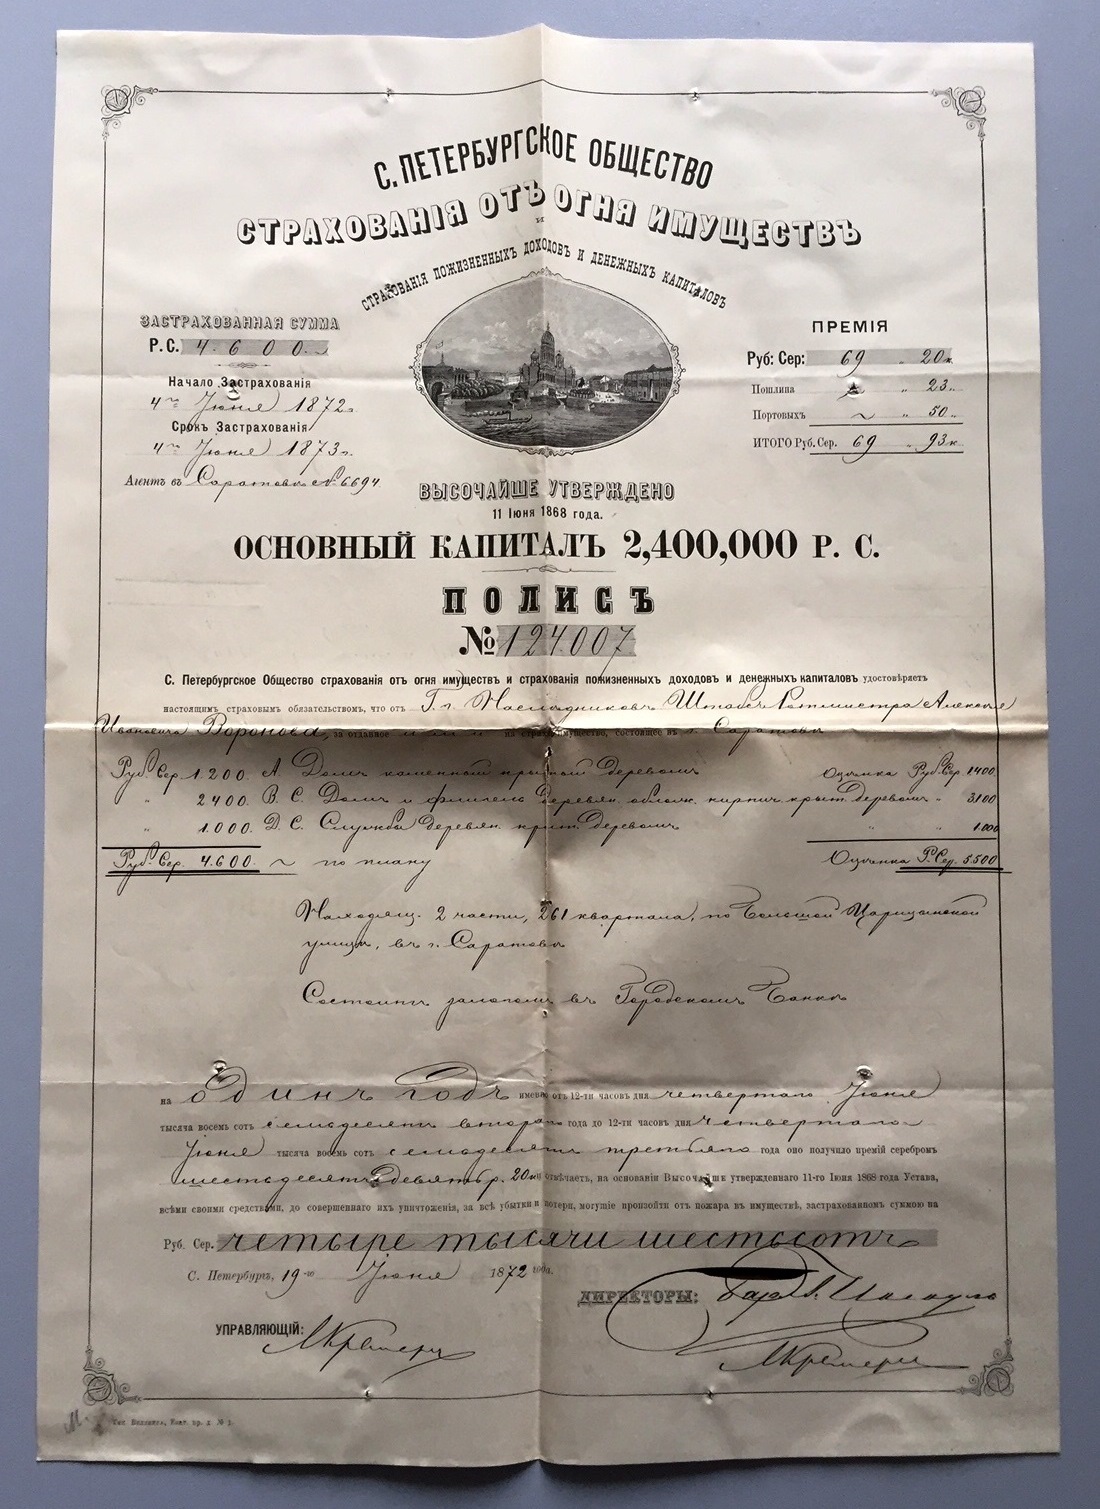 С. ПЕТЕРБУРГСКОЕ ОБЩЕСТВО
СТРАХОВАНІЯ ОТЪ ОГНЯ ИМУЩЕСТВЪ
и
СТРАХОВАНІЯ ПОЖИЗНЕННЫХЪ ДОХОДОВЪ И ДЕНЕЖНЫХЪ КАПИТАЛОВЪ
ЗАСТРАХОВАННАЯ СУММА
Р. С. 4600
Начало Застрахованія
4го Іюня 1872 г.
Срокъ Застрахованія
4го Іюня 1873 г.
Агентъ въ Саратовѣ № 6694
ПРЕМІЯ
Руб: Сер: 69 " 20 к.
Пошлина " 23 "
Портовыхъ ~ " 50 "
ИТОГО Руб. Сер. 69 " 93 к
ВЫСОЧАЙШЕ УТВЕРЖДЕНО
11 Іюня 1868 года.
ОСНОВНЫЙ КАПИТАЛЪ 2,400,000 Р. С.
ПОЛИСЪ
№ 124007
С. Петербургское Общество страхованія отъ огня имуществъ и страхованія пожизненныхъ доходовъ и денежныхъ капиталовъ удостовѣряетъ
настоящимъ страховымъ обязательствомъ, что отъ Г.г. Наслѣдниковъ Штабсъ Ротмистра Алексѣя
Ивановича Воронова, за отданное ими на страхъ имущество, состоящее въ г. Саратовѣ
Руб. Сер. 1200. А. Домъ каменный крытый деревомъ Оцѣнка Руб. Сер. 1400
" 2400. В. С. Домъ и флигель деревян. облож. кирпич. крыт. деревомъ " 3100
" 1.000. Д. С. Службы деревян. крыт. деревомъ " " 1.000
Руб. Сер. 4.600. ~ по плану Оцѣнка Р. Сер. 5.500
Находящ. 2 части, 261 квартала, по Большой Царицынской
улицѣ, въ г. Саратовѣ
Состоитъ залогомъ въ Городскомъ Банкѣ
на одинъ годъ именно отъ 12-ти часовъ дня четвертаго Іюня
тысяча восемь сотъ семьдесятъ втораго года до 12-ти часовъ дня четвертаго
Іюня тысяча восемь сотъ семьдесятъ третьяго года оно получило премій серебромъ
шестьдесятъ девять р. 20 к и отвѣчаетъ, на основаніи Высочайше утвержденнаго 11-го Іюня 1868 года Устава,
всѣми своими средствами, до совершеннаго ихъ уничтоженія, за всѣ убытки и потери, могущіе произойти отъ пожара въ имуществѣ, застрахованномъ суммою на
Руб. Сер. четыре тысячи шестьсотъ
С. Петербургъ, 19-го Іюня 1872 года.
ДИРЕКТОРЫ:
УПРАВЛЯЮЩІЙ: МКремеръ
МКремеръ